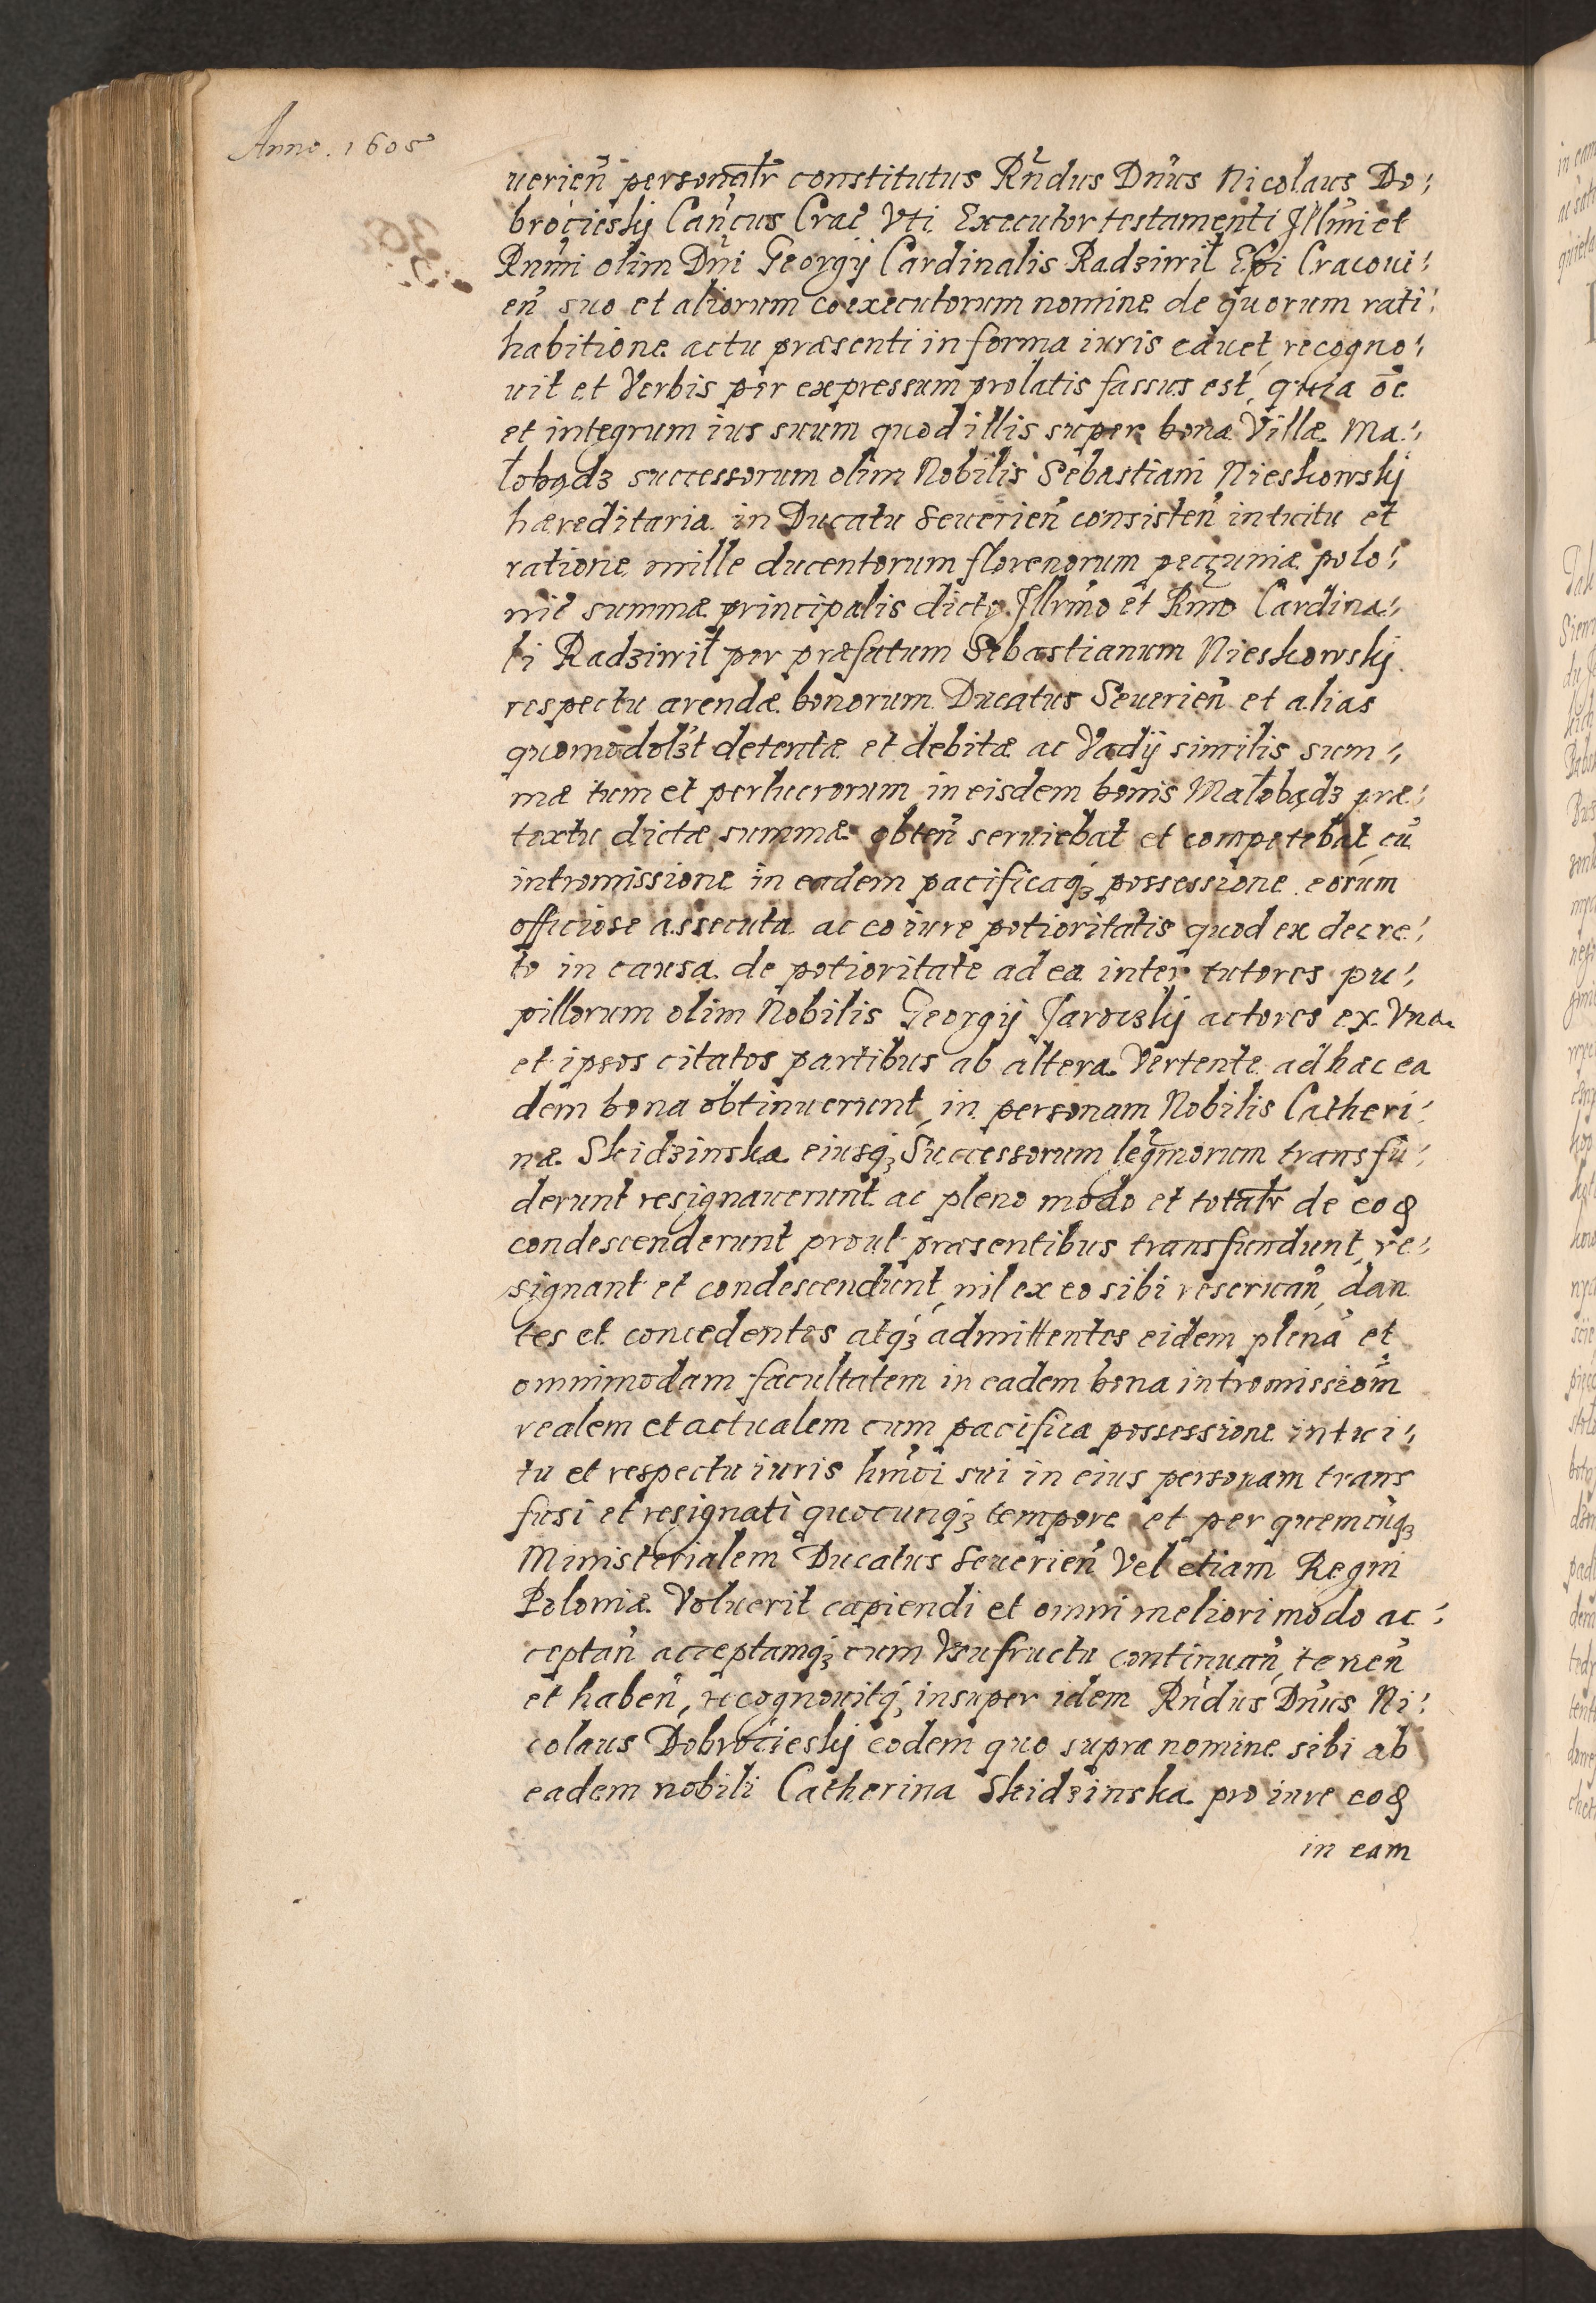 Anno. 1605
uerien̄ personalr̄ constitutus Rn̄dus Dn̄us Nicolaus Do:
brocieskj Can̄cus Crac̄ Vti Executor testamenti Jllm̄i et
Rnm̄i olim Dn̄i Georgij Cardinalis Radziwił Ep̄i Cracoui:
en̄ suo et aliorum coexecutorum nomine de quorum rati:
habitione actu præsenti in forma iuris cauet, recogno:
uit et Verbis per expressum prolatis fassus est, quia oē
et integrum ius suum quod illis super bona Villæ Ma:
łobądz successorum olim Nobilis Sebastiani Nieskowskj
hæreditaria in Ducatu Seuerien̄ consisten̄ intuitu et
ratione mille ducentorum florenorum pecuniæ polo:
nic̄ summæ principalis dicto Jllrm̄o et Rm̄o Cardina:
li Radziwił per præfatum Sebastianum Nieskowskj
respectu arendæ bonorum Ducatus Seuerien̄ et alias
quomodolzt detentæ et debitæ ac Vadij similis sum:
mæ tum et perlucrorum in eisdem bonis Małobądz præ:
textu dictæ summæ obten̄ seruiebat et competebat, cū
intromissione in eadem pacificaqz possessione eorum
officiose assecuta ac eo iure potioritatis quod ex decre:
to in causa de potioritate ad ea inter tutores pu:
pillorum olim Nobilis Georgij Jaroczkj actores ex Vna
et ipsos citatos partibus ab altera Vertente ad hac ea
dem bona obtinuerunt, in personam Nobilis Catheri:
næ Skidzinska eiusqz Successorum legm̄orum transfu:
derunt resignauerunt ac pleno modo et totalr̄ de eoꝝ
condescenderunt prout præsentibus transfundunt, re:
signant et condescendunt, nil ex eo sibi reseruan̄, dan
tes et concedentes atqz admittentes eidem plenā et
omnimodam facultatem in eadem bona intromissiōm
realem et actualem cum pacifica possessione intui:
tu et respectu iuris hm̄oi sui in eius personam trans
fusi et resignati quocunqz tempore et per quemcūqz
Ministerialem Ducatus Seuerien̄ Vel etiam Regni
Poloniæ Voluerit capiendi et omni meliori modo ac:
ceptan̄ acceptamqz cum Vsufructu continuan̄, tenen̄
et haben̄, recognouitqz insuper idem Rn̄dus Dn̄us Ni:
colaus Dobrocieskj eodem quo supra nomine sibi ab
eadem nobili Catherina Skidzinska pro iure eoꝝ
in eam